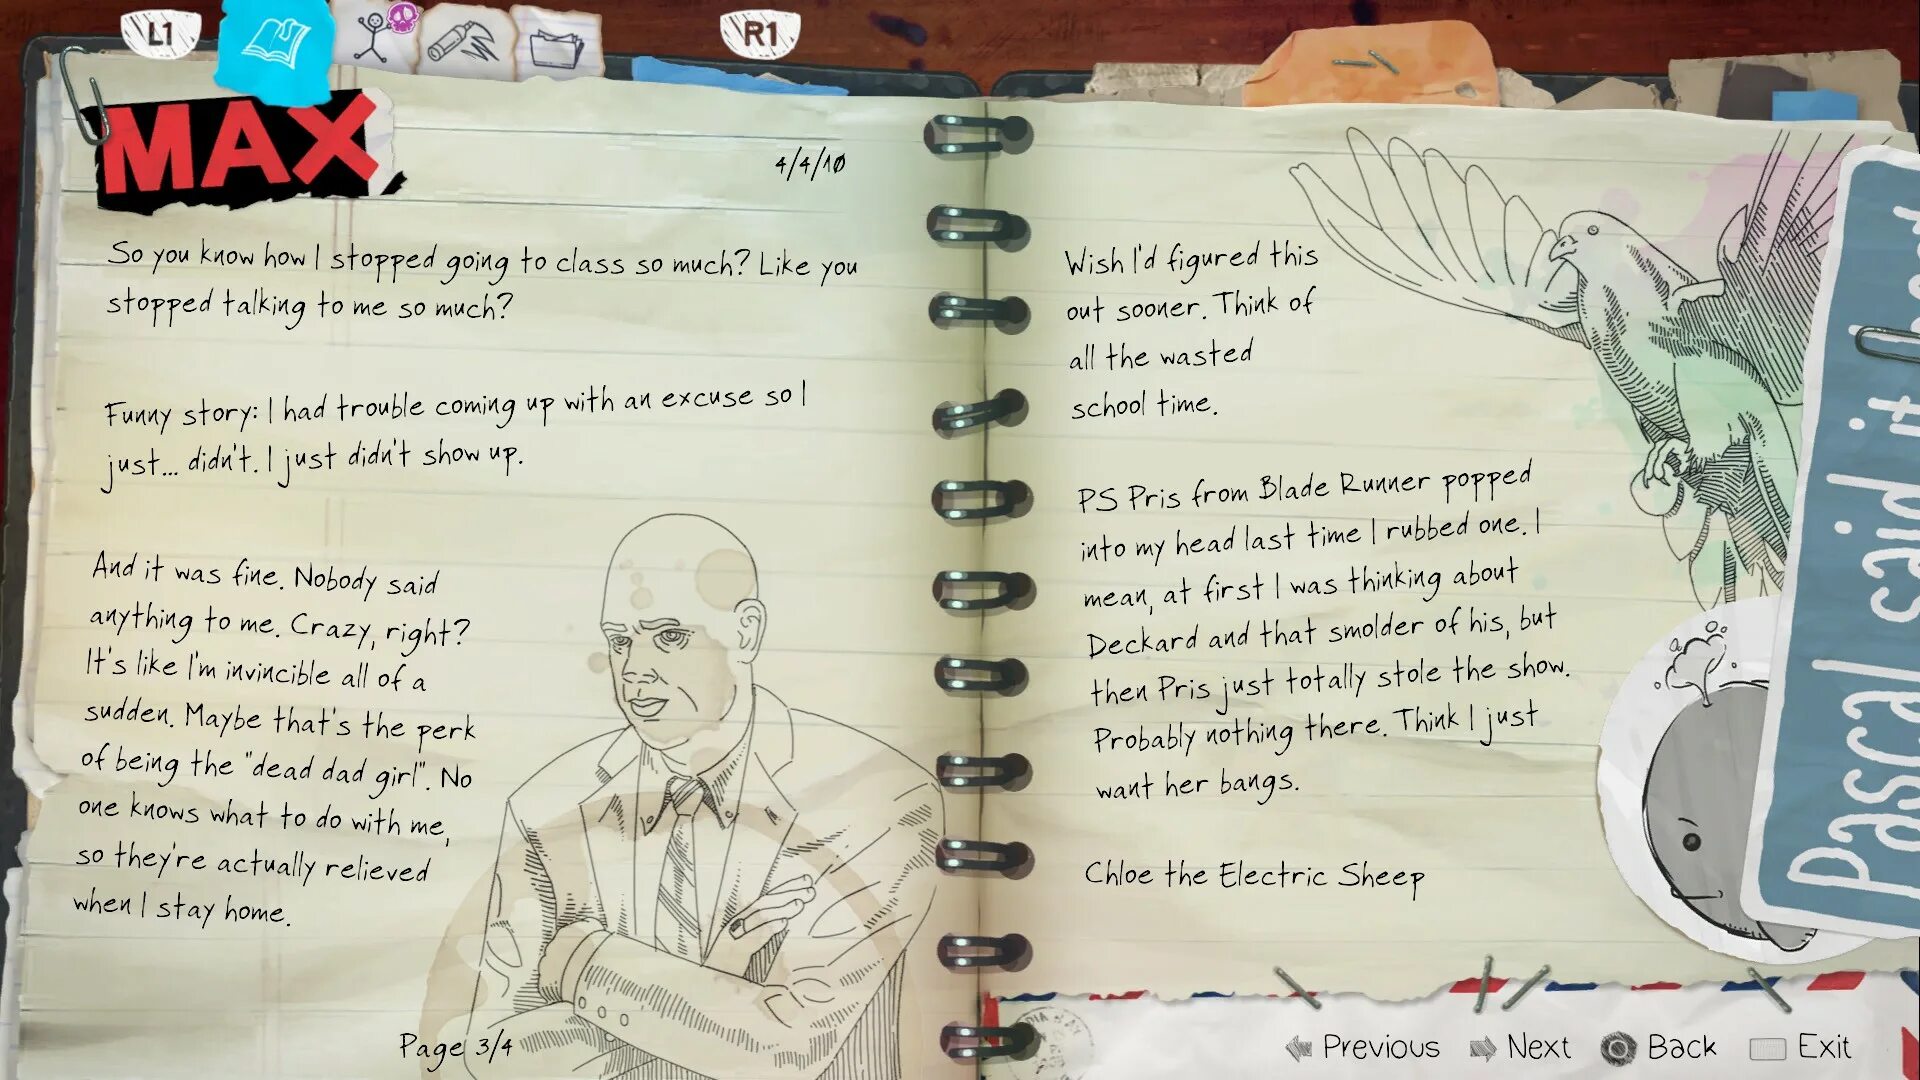 L1
R1
MAX
4/4/10
So you know how I stopped going to class so much? Like you
stopped talking to me so much?
Funny story: I had trouble coming up with an excuse so I
just... didn't. I just didn't show up.
And it was fine. Nobody said
anything to me. Crazy, right?
It's like I'm invincible all of a
sudden. Maybe that's the perk
of being the "dead dad girl". No
one knows what to do with me,
so they're actually relieved
when I stay home.
Page 3/4
Wish I'd figured this
out sooner. Think of
all the wasted
school time.
PS Pris from Blade Runner popped
into my head last time I rubbed one. I
mean, at first I was thinking about
Deckard and that smolder of his, but
then Pris just totally stole the show.
Probably nothing there. Think I just
want her bangs.
Chloe the Electric Sheep
Pascal said it
Previous
Next
Back
Exit